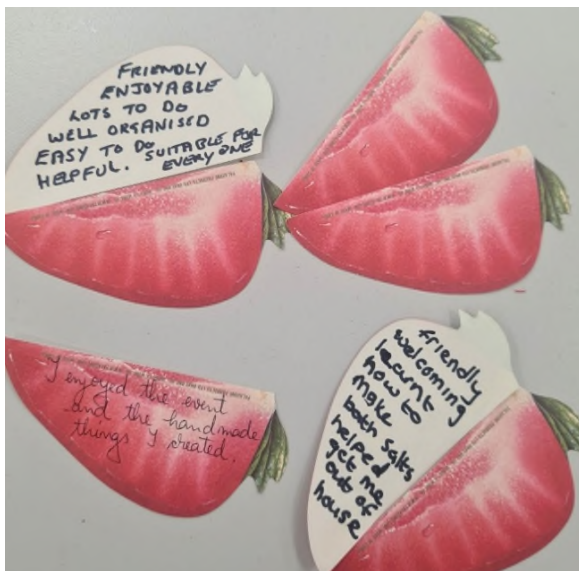 FRIENDLY
ENJOYABLE
LOTS TO DO
WELL ORGANISED
EASY TO DO
HELPFUL. SUITABLE FOR
EVERY ONE
I enjoyed the event
and the handmade
things I created.
friendly
welcoming
learnt
how to
make
bath salts
helped
get me
out of
house